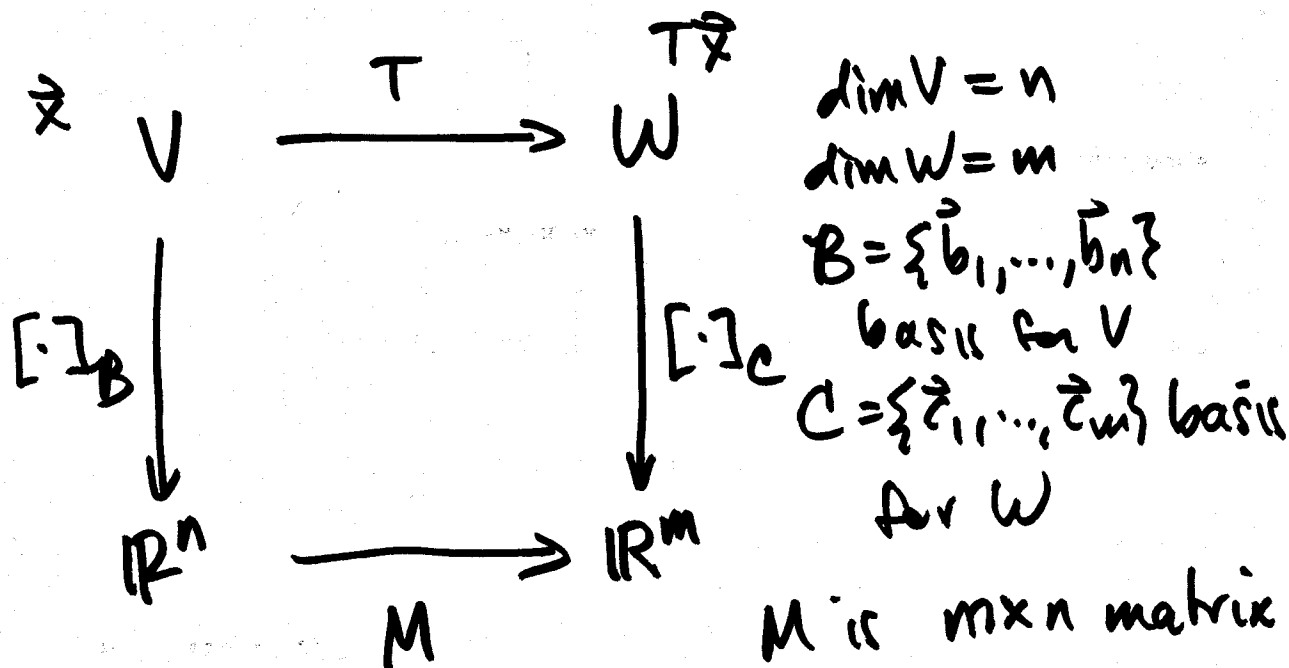 x⃗ V T W Tx⃗
[·]_B [·]_C
ℝⁿ M ℝᵐ
dim V = n
dim W = m
B = {b⃗₁, ..., b⃗ₙ}
basis for V
C = {c⃗₁, ..., c⃗ₘ} basis
for W
M is m×n matrix